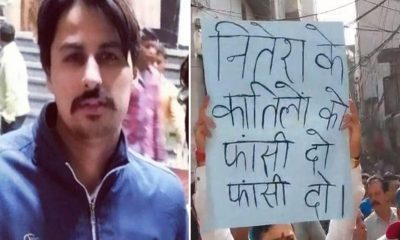 नितेश के
कातिलों को
फांसी दो
फांसी दो।